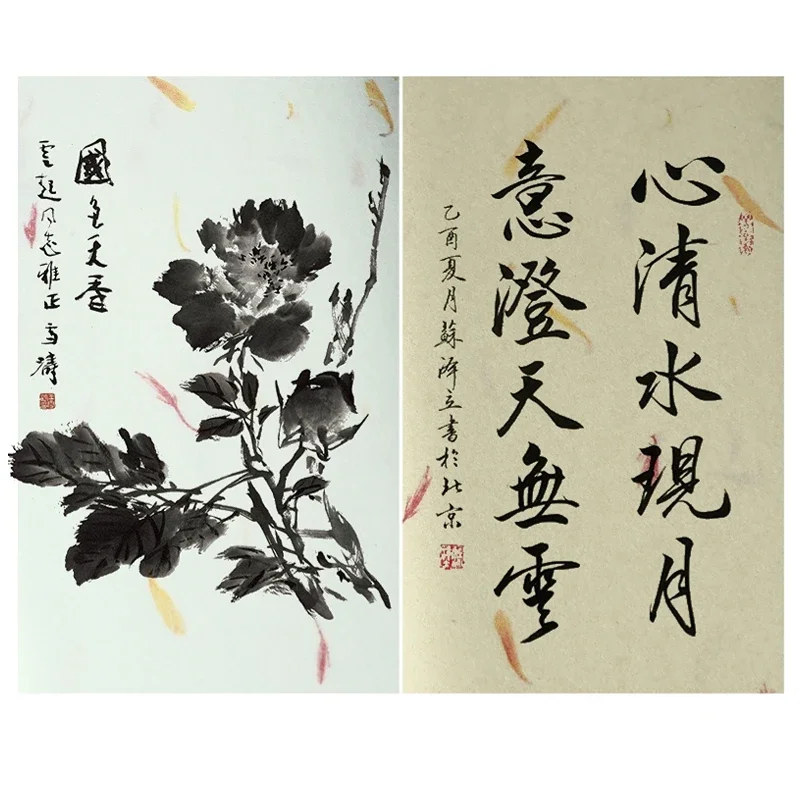 國色天香
雲起同志雅正 雪濤
心清水現月
意澄天無雲
乙酉夏月蘇澤立書於北京